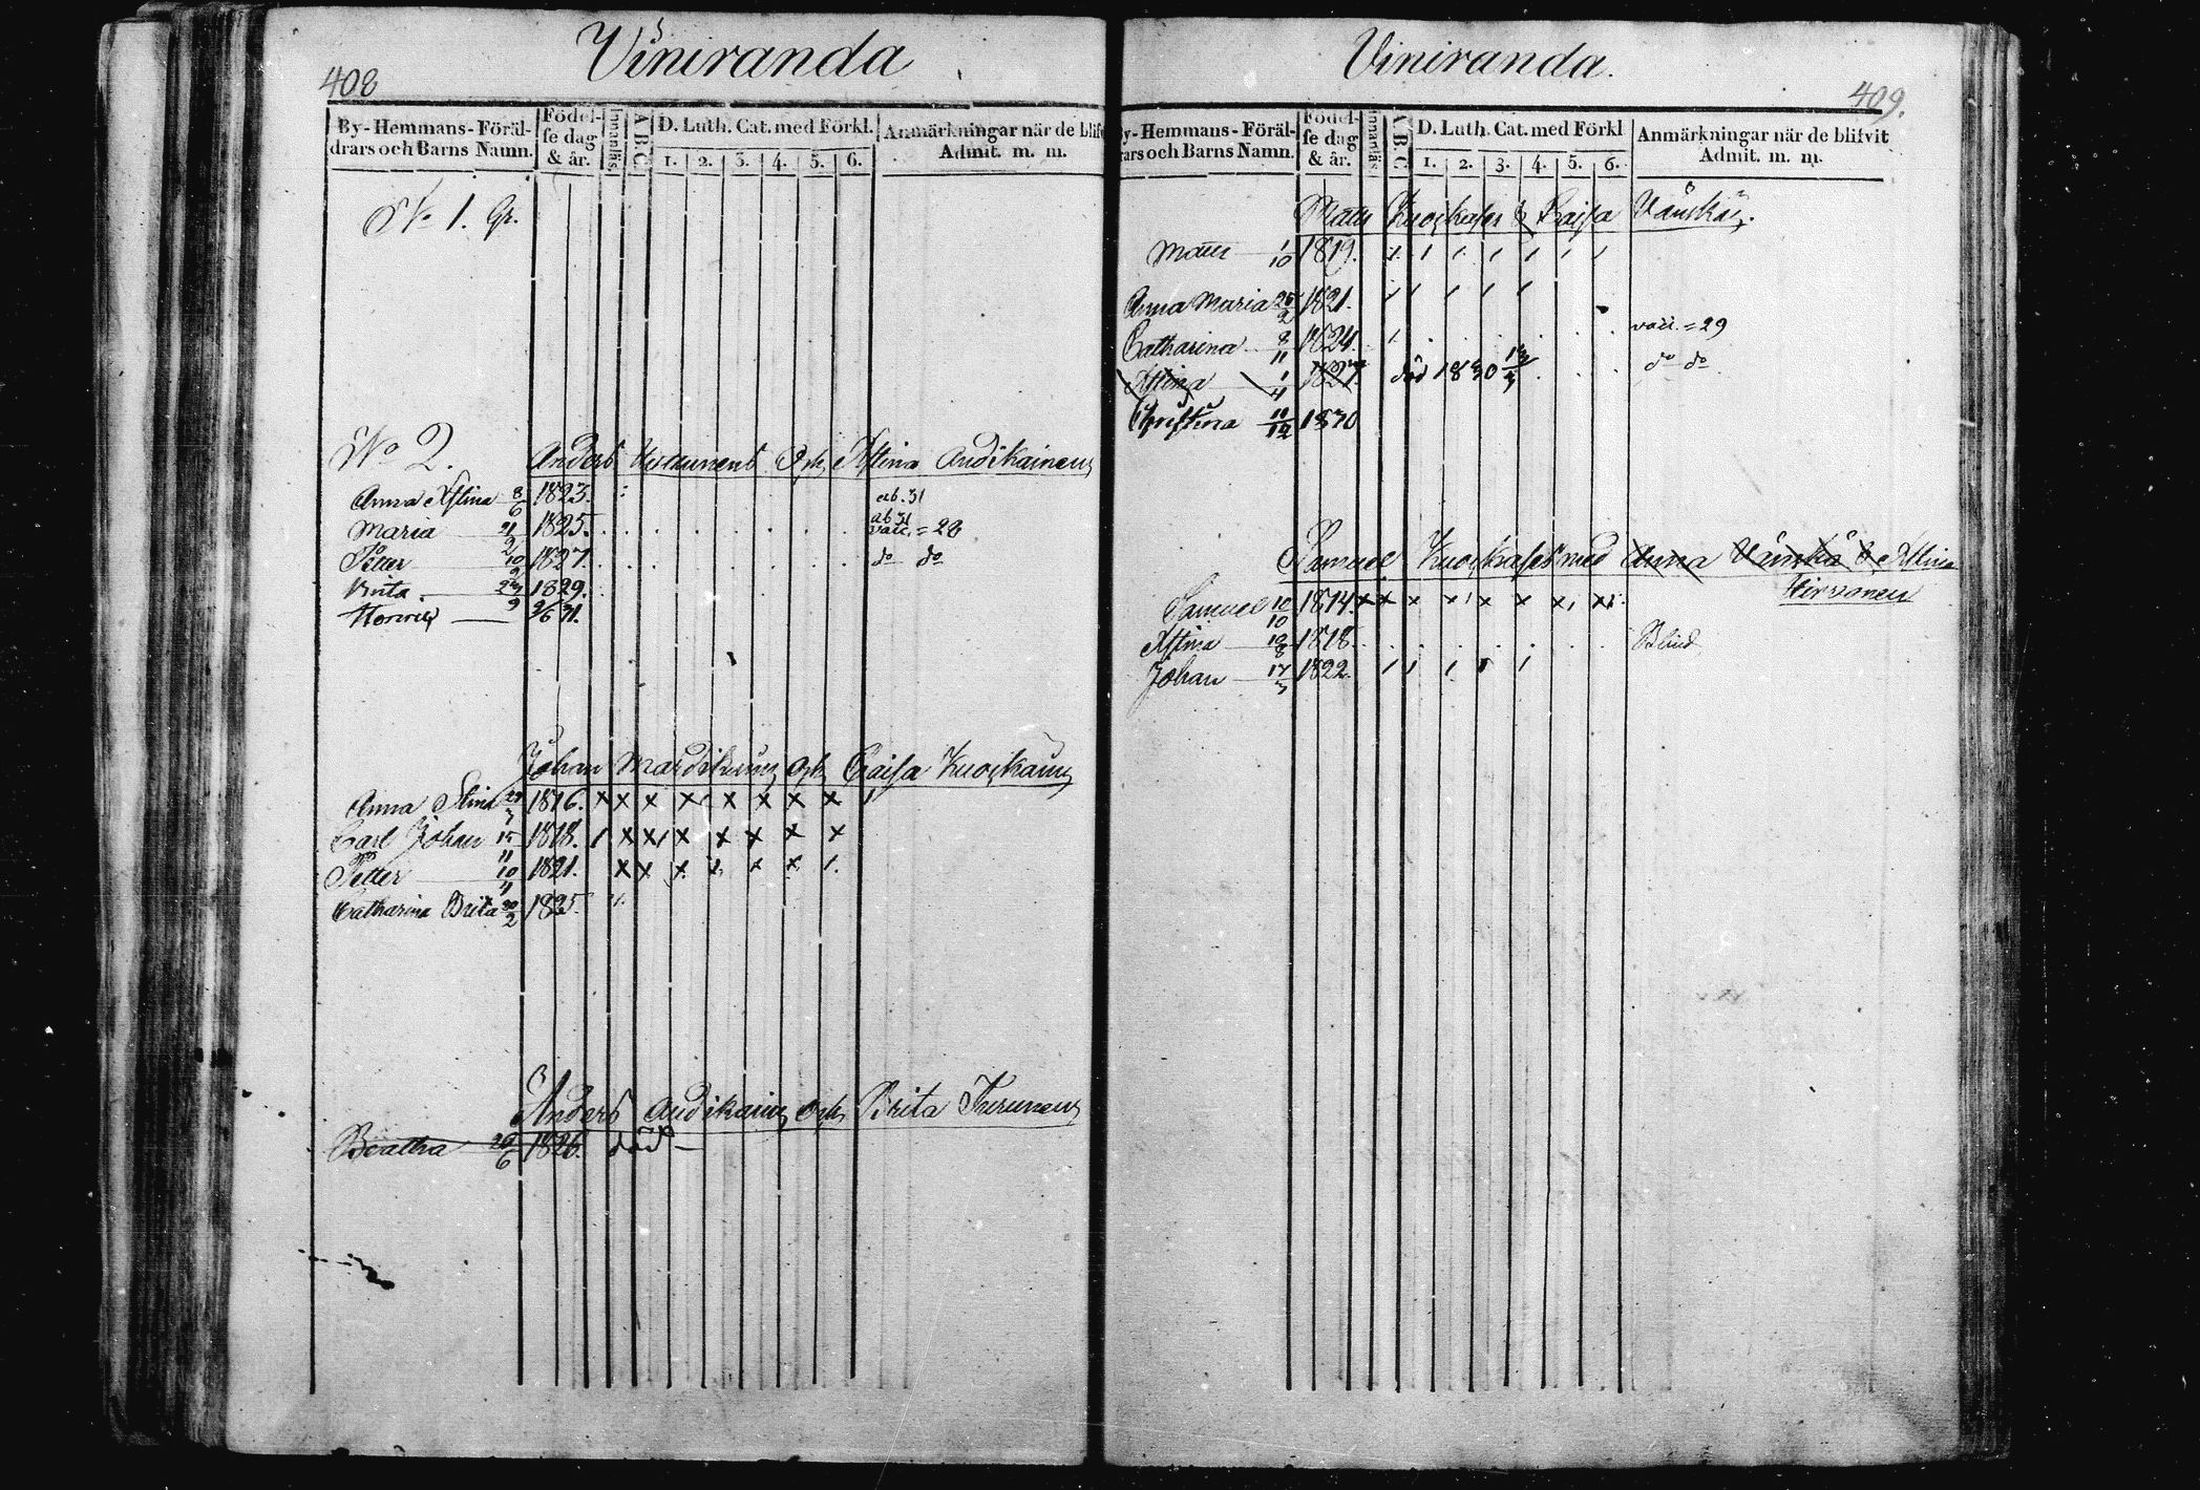 408
Viniranda
By-Hemmans-Föräl-
drars och Barns Namn.
Födel-
se dag
& år.
Innanläs.
A B C
D. Luth. Cat. med Förkl.
1. 2. 3. 4. 5. 6.
Anmärkningar när de blifv
Admit. m. m.
No 1. Gr.
No 2.
Anders Och Kstina Audikainen
Anna Kstina 8/6 1823. ab. 31
Maria 21/2 1825. ab 31 vacc. = 28
Petter 10/2 1827. do do
Brita 23/9 1829.
Henric 9/6 31.
Johan Mardikainen Och Caisa Kuockain
Anna Stina 29/3 1816. x x x x x x x x
Carl Johan 15/11 1818. x x x x x x x
Petter 10/11 1821. x x x x x
Catharina Brita 20/2 1825.
Anders Audikain Och Brita Turunen
Beatha 29/6 1826. död
Viniranda.
409.
y-Hemmans-Föräl-
rars och Barns Namn.
Födel-
se dag
& år.
Innanläs
A B C
D. Luth. Cat. med Förkl
1. 2. 3. 4. 5. 6.
Anmärkningar när de blifvit
Admit. m. m.
Matts & Caisa Vänskä
Matts 1/10 1819.
Anna Maria 25/2 1821.
Catharina 8/11 1824. vacc. = 29
Kstina 1/4 1827. död 1830 do do
Christina 11/12 1830
Samuel med Anna Vänskä & Kstina
Hirvonen
Samuel 10/10 1814. x x x x x x x x
Kstina 19/8 1818. Blind
Johan 17/3 1822.